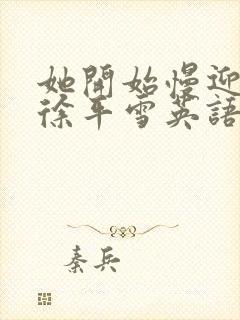 她開始慢迎
徐平雪英語
秦兵